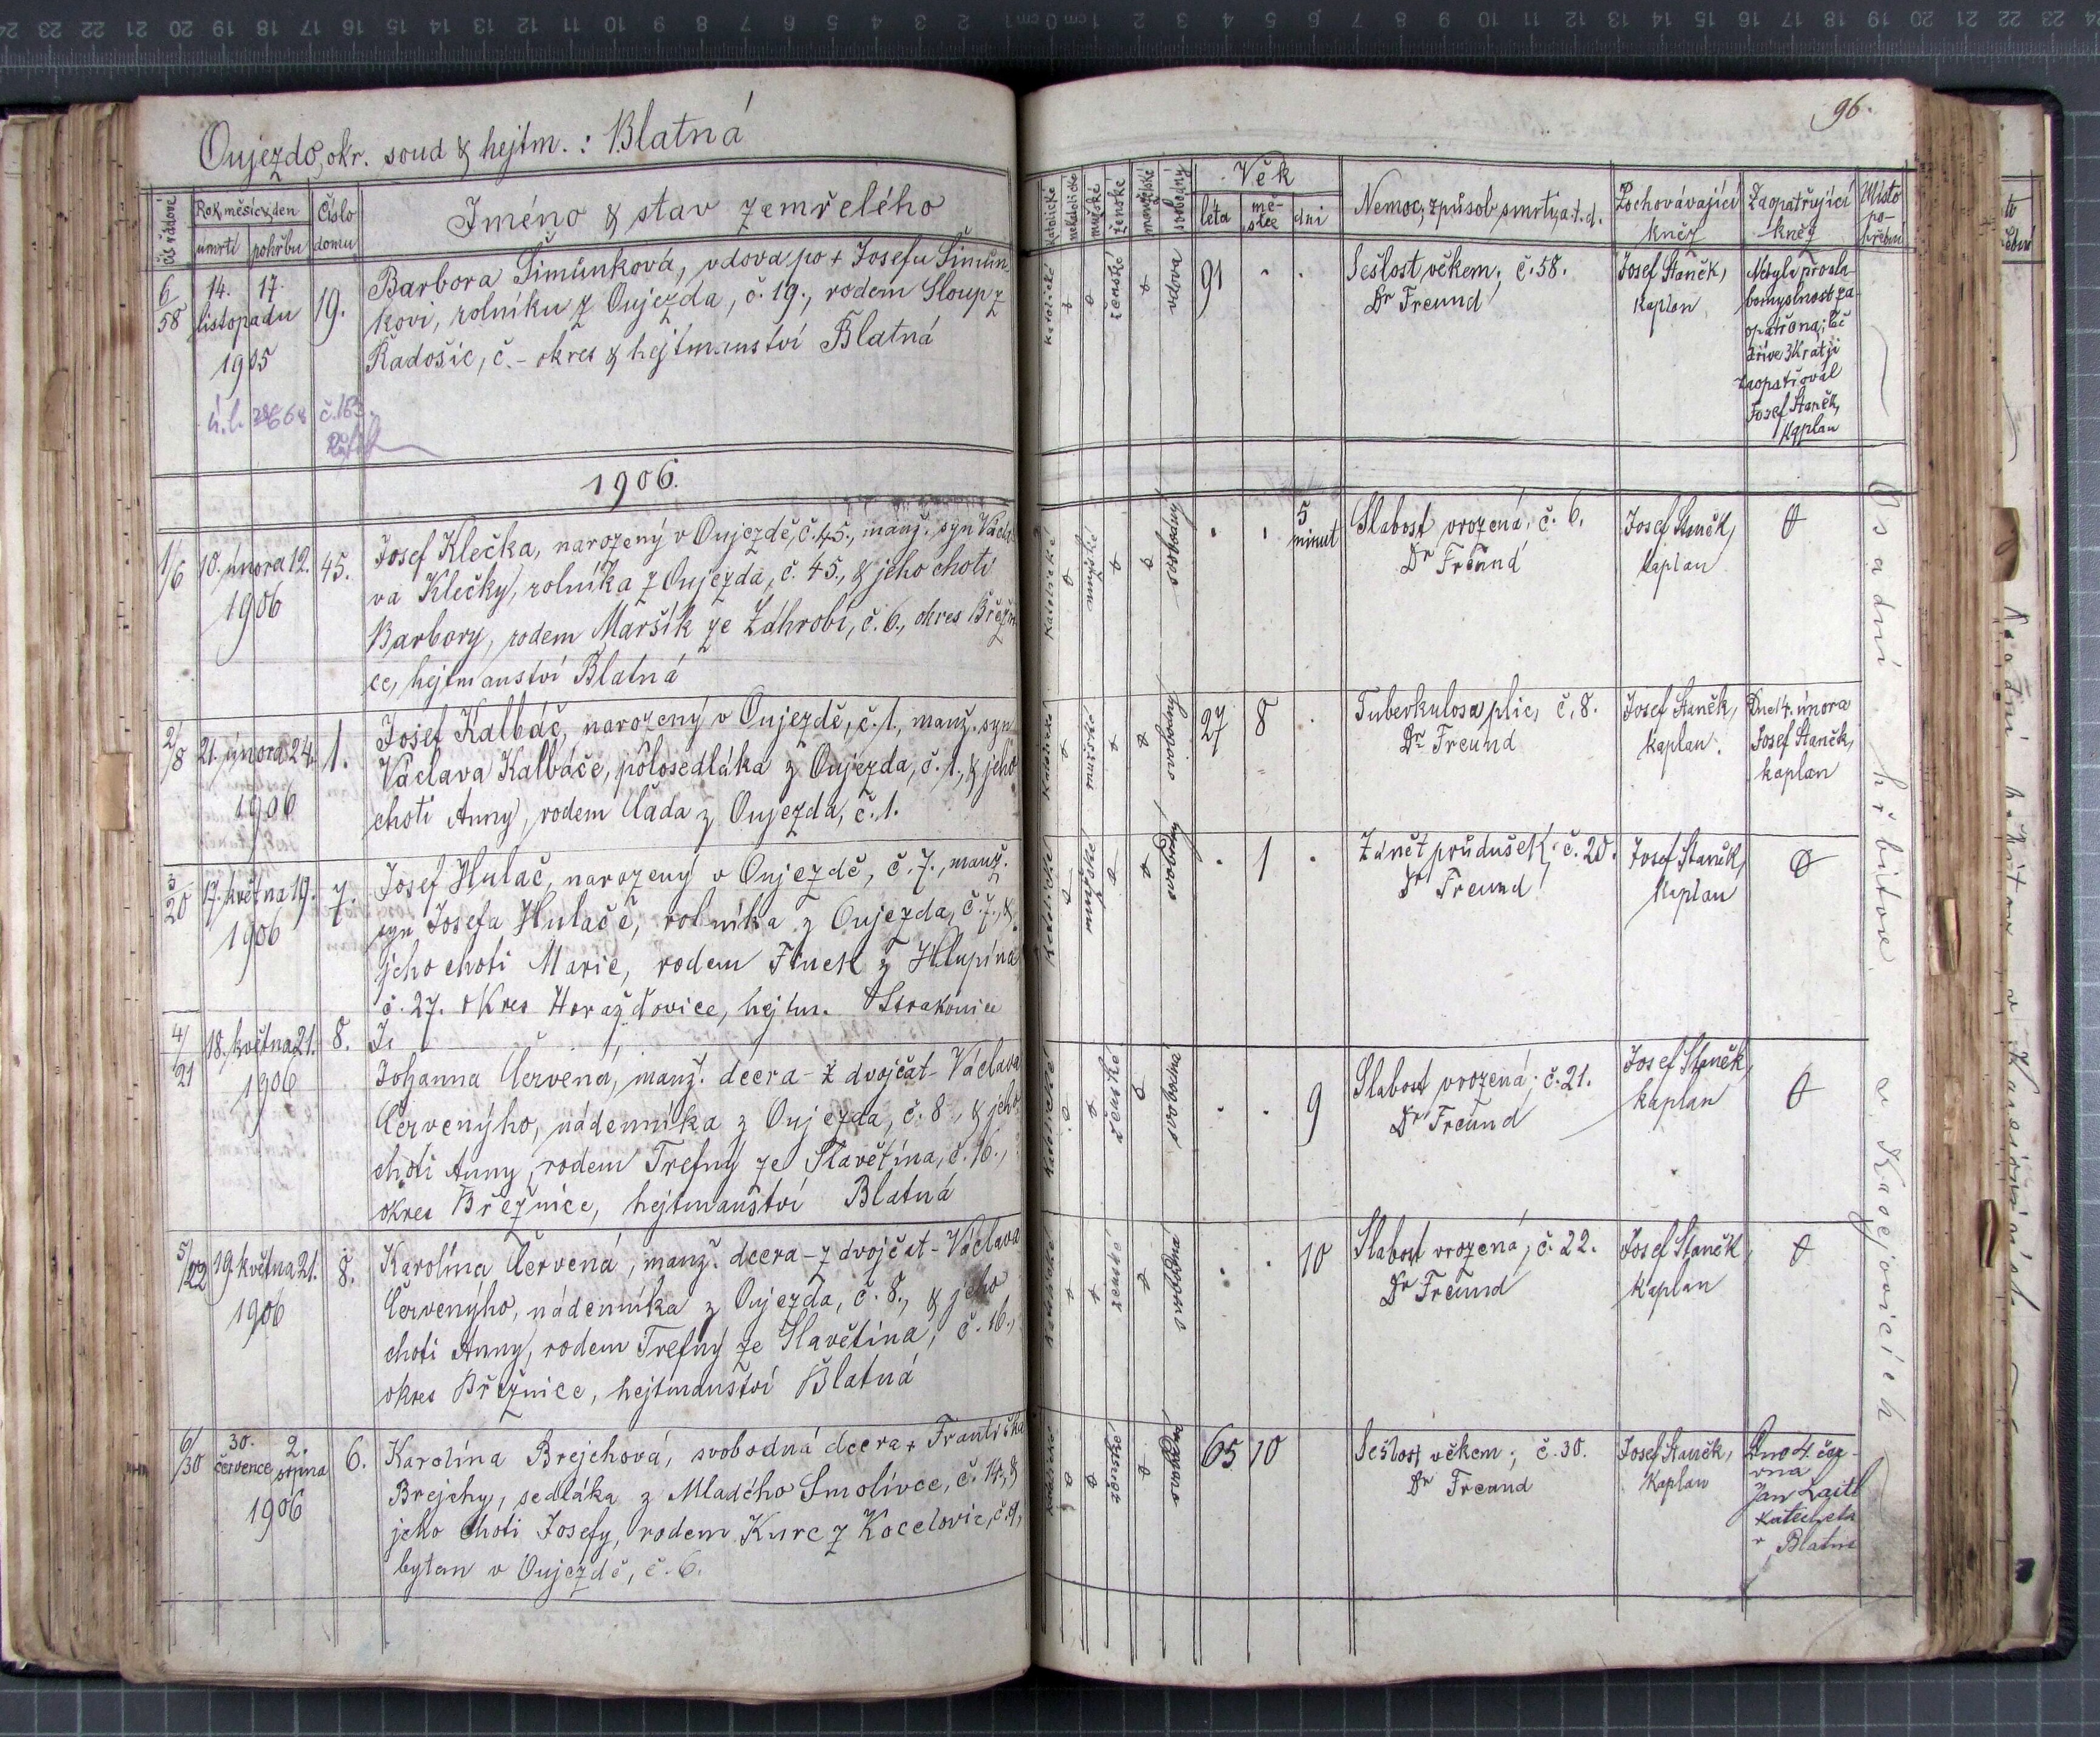 96.
Oujezdo, okr. soud & hejtm. : Blatná
Rok, měsíc, den
úmrtí pohřbu
Číslo domu
Jméno & stav zemřelého
katolické
nekatolické
mužské
ženské
manželské
svobodný
Věk
léta
mě-
síce
dni
Nemoc, způsob smrti, a.t.d.
Pochovávající
kněz
Zaopatřující
kněz
Místo
po-
hřební
6/58
14. 17.
listopadu
1905
19.
Barbora Šimůnková, vdova po + Josefu Šimůn-
kovi, rolníku z Oujezda, č. 19., rodem Sloup z
Řadošic, č. - okres & hejtmanství Blatná
katolické
ženské
vdova
91
Sešlost věkem; č. 58.
Dr Freund
Josef Staněk,
kaplan
zaopatřoval
Josef Staněk,
kaplan
č. 163.
1906.
1/6
10. února 12.
1906
45.
Josef Klečka, narozený v Oujezdě, č. 45., manž. syn Václa-
va Klečky, rolníka z Oujezda, č. 45., & jeho choti
Barbory, rodem Maršík ze Záhrobí, č. 6., okres Březni-
ce, hejtmanství Blatná
katolické
mužské
svobodný
5
minut
Slabost vrozená, č. 6.
Dr Freund
Josef Staněk,
kaplan
2/8
21. února 24.
1906
1.
Josef Kalbáč, narozený v Oujezdě, č. 1., manž. syn
Václava Kalbáče, pólosedláka z Oujezda, č. 1., & jeho
choti Anny, rodem Čada z Oujezda, č. 1.
katolické
mužské
svobodný
27 8
Tuberkulosa plic, č. 8.
Dr Freund
Josef Staněk,
kaplan.
Dne 14. února
Josef Staněk,
kaplan
3/20
17. května 19.
1906
7.
Josef Hulač, narozený v Oujezdě, č. 7., manž.
syn Josefa Hulače, rolníka z Oujezda, č. 7., &
jeho choti Marie, rodem Finek z Hlupína
č. 27. okres Horažďovice, hejtm. Strakonice
katolické
mužské
svobodný
1
Zánět průdušek, č. 20.
Dr Freund
Josef Staněk,
kaplan
4/21
18. května 21.
1906
8.
Jo
Johanna Červená, manž. dcera - z dvojčat - Václava
Červenýho, nádenníka z Oujezda, č. 8., & jeho
choti Anny, rodem Trefný ze Slavětína, č. 16.,
okres Březnice, hejtmanství Blatná
katolické
ženské
svobodná
9
Slabost vrozená; č. 21.
Dr Freund
Josef Staněk,
kaplan
5/22
19. května 21.
1906
8.
Karolína Červená, manž. dcera - z dvojčat - Václava
Červenýho, nádenníka z Oujezda, č. 8., & jeho
choti Anny, rodem Trefný ze Slavětína, č. 16.,
okres Březnice, hejtmanství Blatná
katolické
ženské
svobodná
10
Slabost vrozená; č. 22.
Dr Freund
Josef Staněk,
kaplan
6/30
30. 2.
července srpna
1906
6.
Karolína Brejchová, svobodná dcera + Františka
Brejchy, sedláka z Mladého Smolivce, č. 14., &
jeho choti Josefy, rodem Kurc z Kocelovic, č. 9,
bytem v Oujezdě, č. 6.
katolické
ženské
svobodná
65 10
Sešlost věkem; č. 30.
Dr Freund
Josef Staněk,
kaplan
Dne 4. čer-
vna
Jan Laitl
katecheta
v Blatné
Osadní hřbitov v Kasejovicích